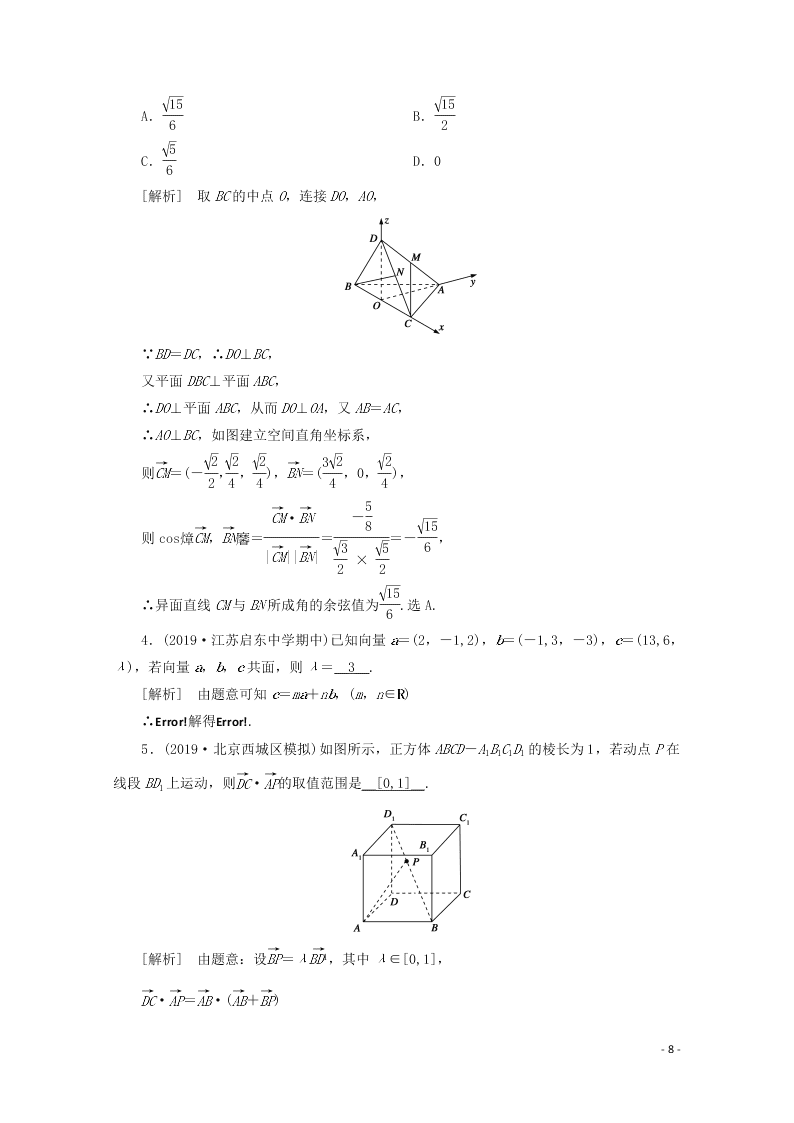 A. √15/6 B. √15/2
C. √5/6 D. 0
[解析] 取 BC 的中点 O，连接 DO，AO，
z
D
M
N
B
A
y
O
C
x
∵BD＝DC，∴DO⊥BC，
又平面 DBC⊥平面 ABC，
∴DO⊥平面 ABC，从而 DO⊥OA，又 AB＝AC，
∴AO⊥BC，如图建立空间直角坐标系，
则CM→＝(－√2/2, √2/4, √2/4)，BN→＝(3√2/4, 0, √2/4)，
则 cos熳CM→，BN→麐＝CM→·BN→/|CM→||BN→|＝(－5/8)/(√3/2 × √5/2)＝－√15/6，
∴异面直线 CM 与 BN 所成角的余弦值为√15/6.选 A.
4．(2019·江苏启东中学期中)已知向量 a＝(2，－1,2)，b＝(－1,3，－3)，c＝(13,6，
λ)，若向量 a，b，c 共面，则 λ＝__3__.
[解析] 由题意可知 c＝ma＋nb，(m，n∈R)
∴Error!解得Error!.
5．(2019·北京西城区模拟)如图所示，正方体 ABCD－A₁B₁C₁D₁ 的棱长为 1，若动点 P 在
线段 BD₁ 上运动，则DC→·AP→的取值范围是__[0,1]__.
D₁
C₁
A₁
B₁
P
D
C
A
B
[解析] 由题意：设BP→＝λBD₁→，其中 λ∈[0,1]，
DC→·AP→＝AB→·(AB→＋BP→)
- 8 -